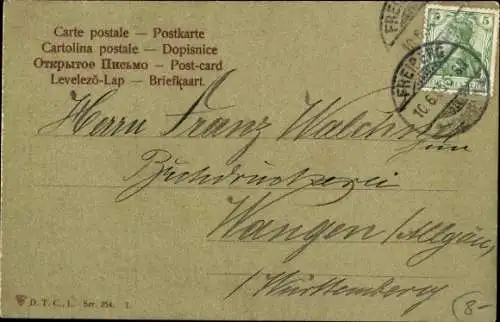 Carte postale — Postkarte
Cartolina postale — Dopisnice
Открытое Письмо — Post-card
Levelező-Lap — Briefkaart.
5 5
FREIBURG
10.6.
Herrn Franz Walchner
zum
Buchdruckerei
Wangen /Allgäu/
/Württemberg
D. T. C., L. Ser. 254. 1.
8-